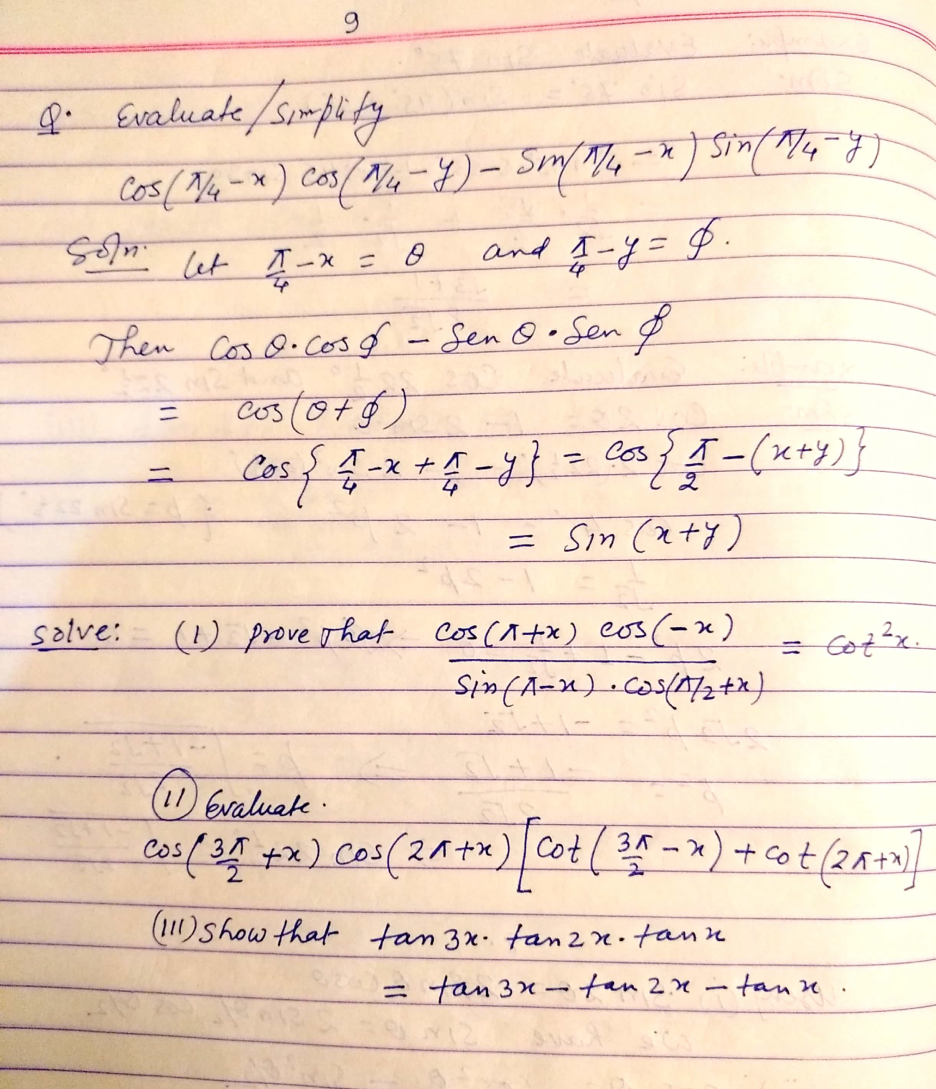 9
Q. Evaluate/Simplify
cos(π/4-x) cos(π/4-y) - Sin(π/4-x) Sin(π/4-y)
Soln. let π/4-x = θ and π/4-y = ϕ.
Then cosθ.cosϕ - Senθ.Senϕ
= cos(θ+ϕ)
= cos{π/4-x+π/4-y} = cos{π/2-(x+y)}
= Sin(x+y)
Solve: (1) prove that cos(π+x) cos(-x) / Sin(π-x).cos(π/2+x) = cot²x.
(11) Evaluate.
cos(3π/2+x) cos(2π+x)[cot(3π/2-x)+cot(2π+x)]
(111) Show that tan3x. tan2x. tanx
= tan3x - tan2x - tanx.